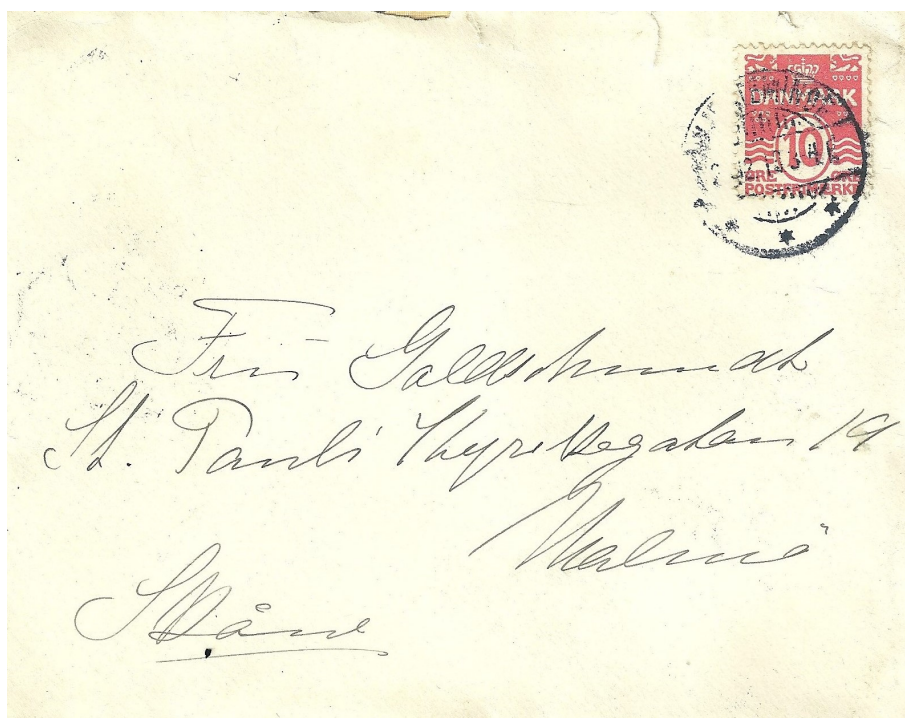 DANMARK
10
ØRE ØRE
POSTFRIMÆRKE
Fru Goldschmidt
St. Pauli Kyrkogatan 19
Malmö
Skåne